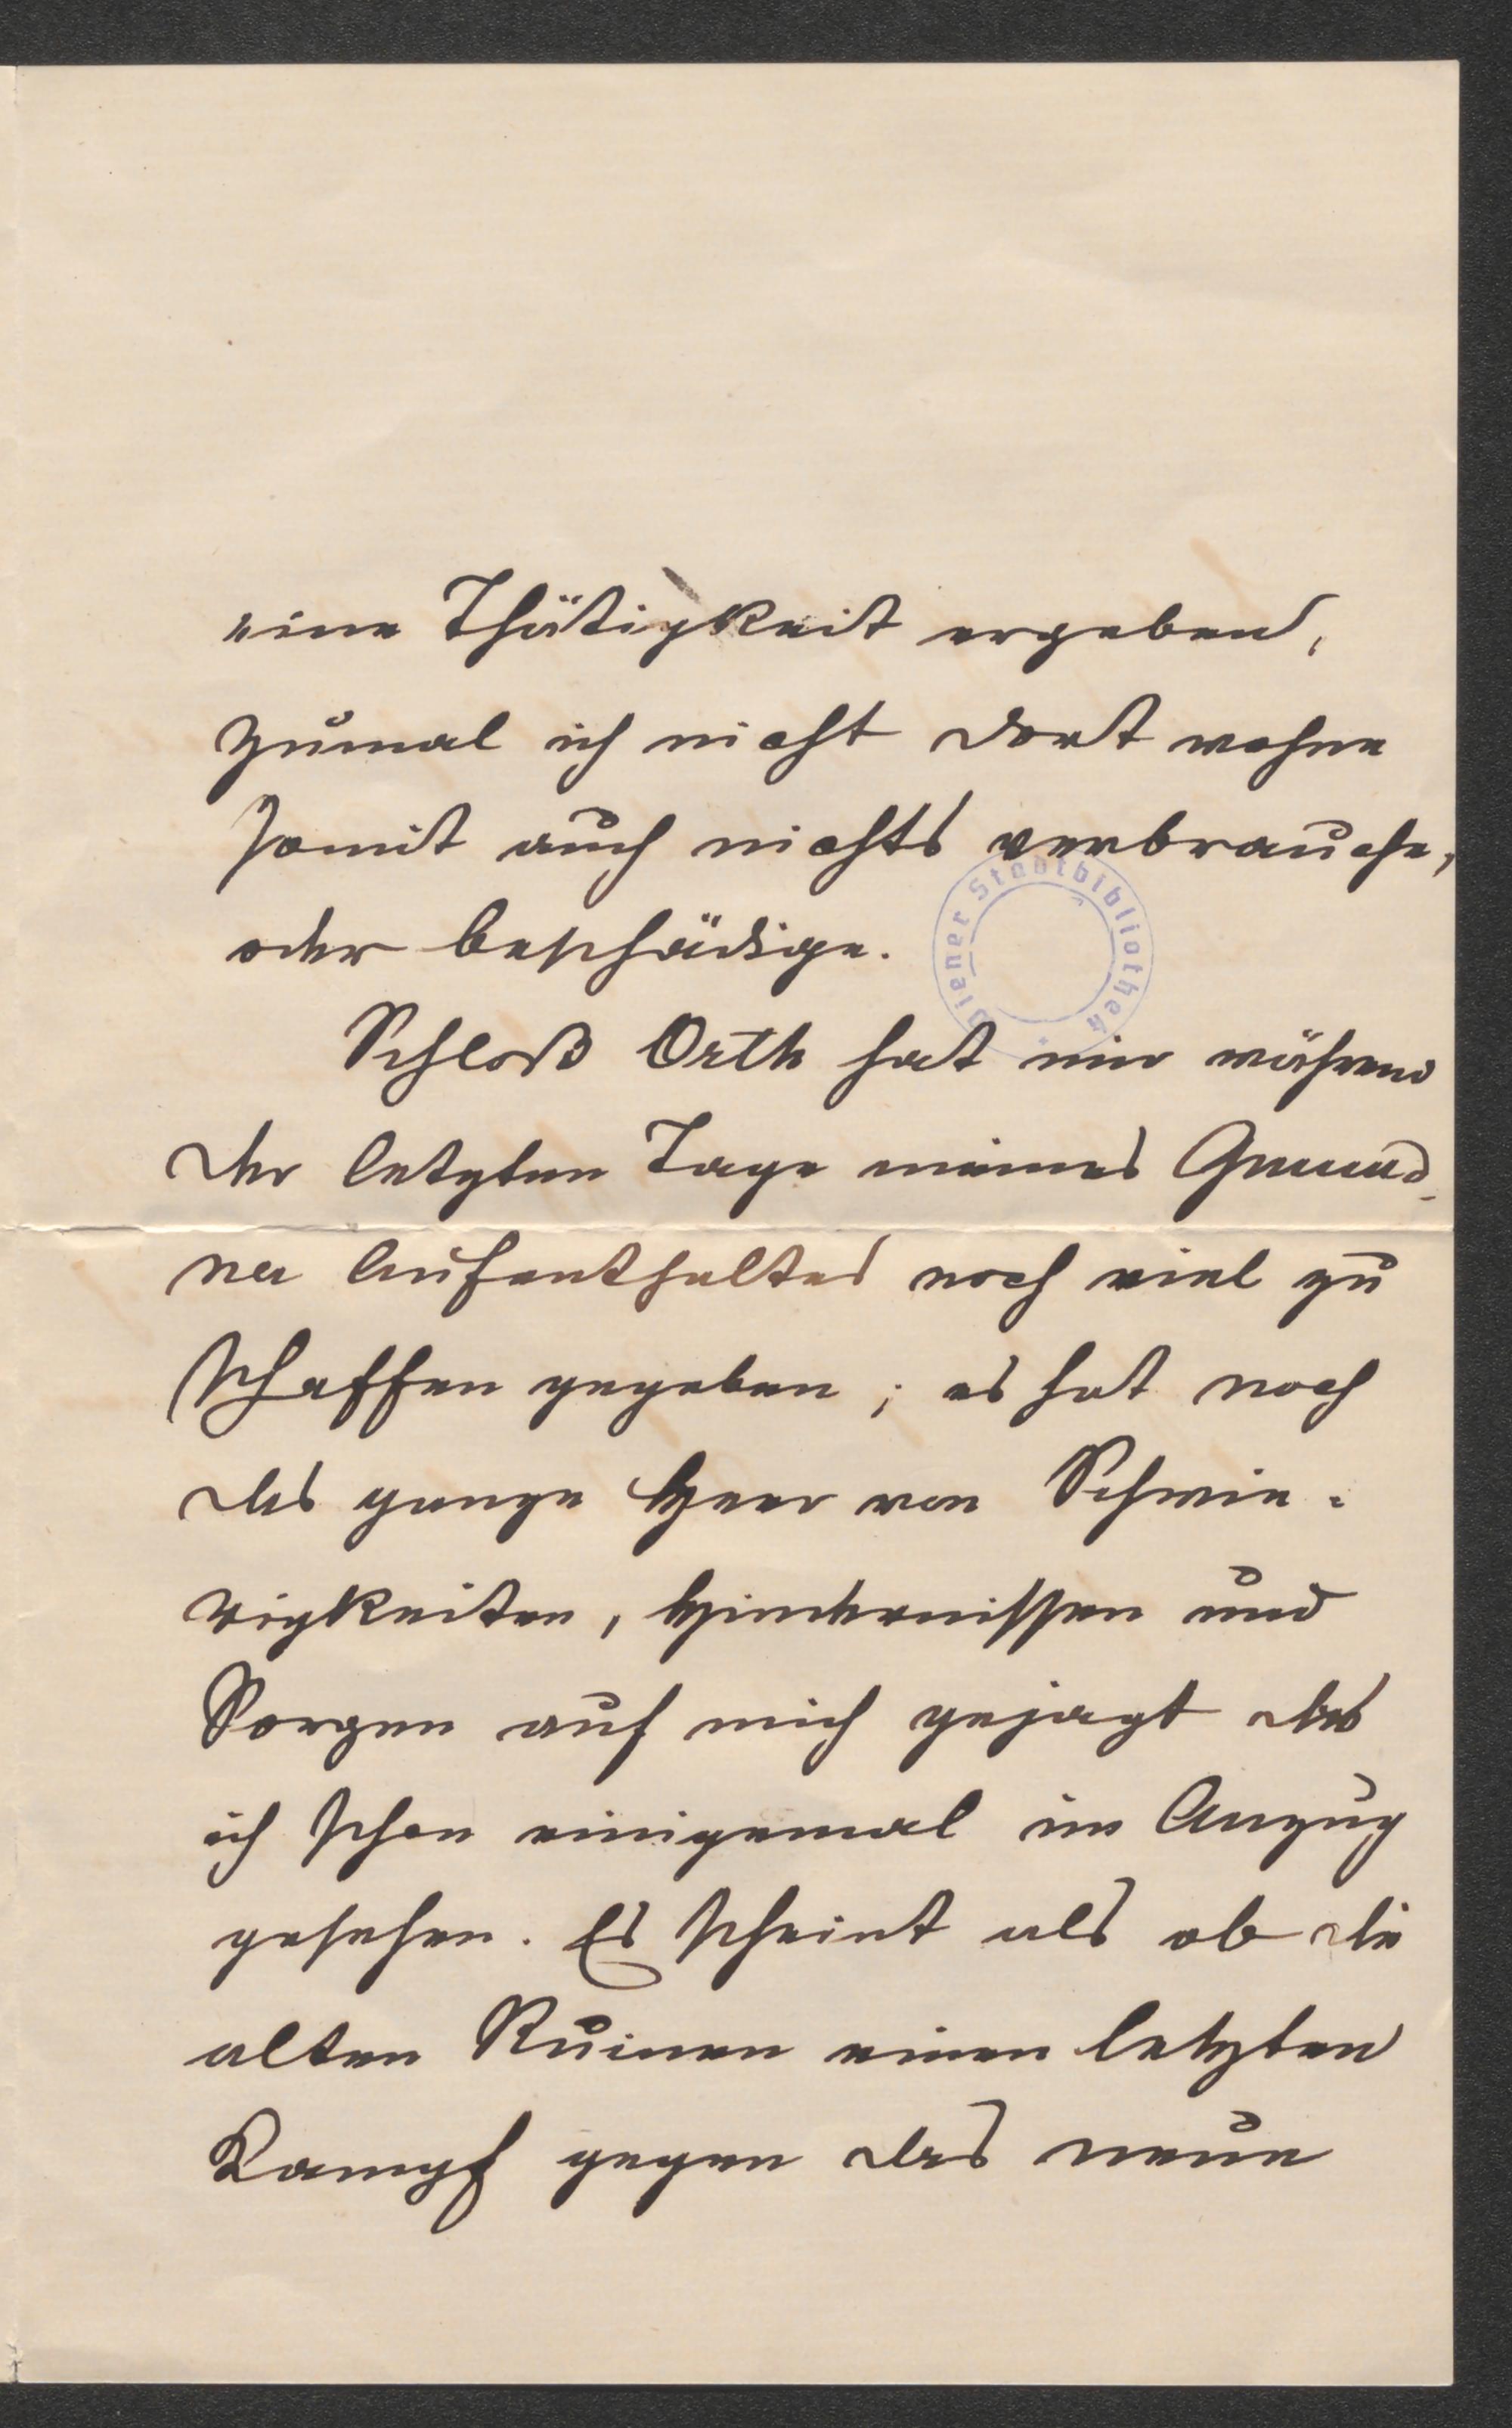 eine Thätigkeit ergeben,
zumal ich nicht dort wohne
somit auch nichts verbrauche,
oder beschädige.
Wiener Stadtbibliothek
Schloß Orth hat mir während
der letzten Tage meines Gmund-
ner Aufenthaltes noch viel zu
schaffen gegeben; es hat noch
das ganze Heer von Schwie-
rigkeiten, Hindernissen und
Sorgen auf mich gejagt das
ich schon einigemal im Anzug
gesehen. Es scheint als ob die
alten Ruinen einen letzten
Kampf gegen das neue